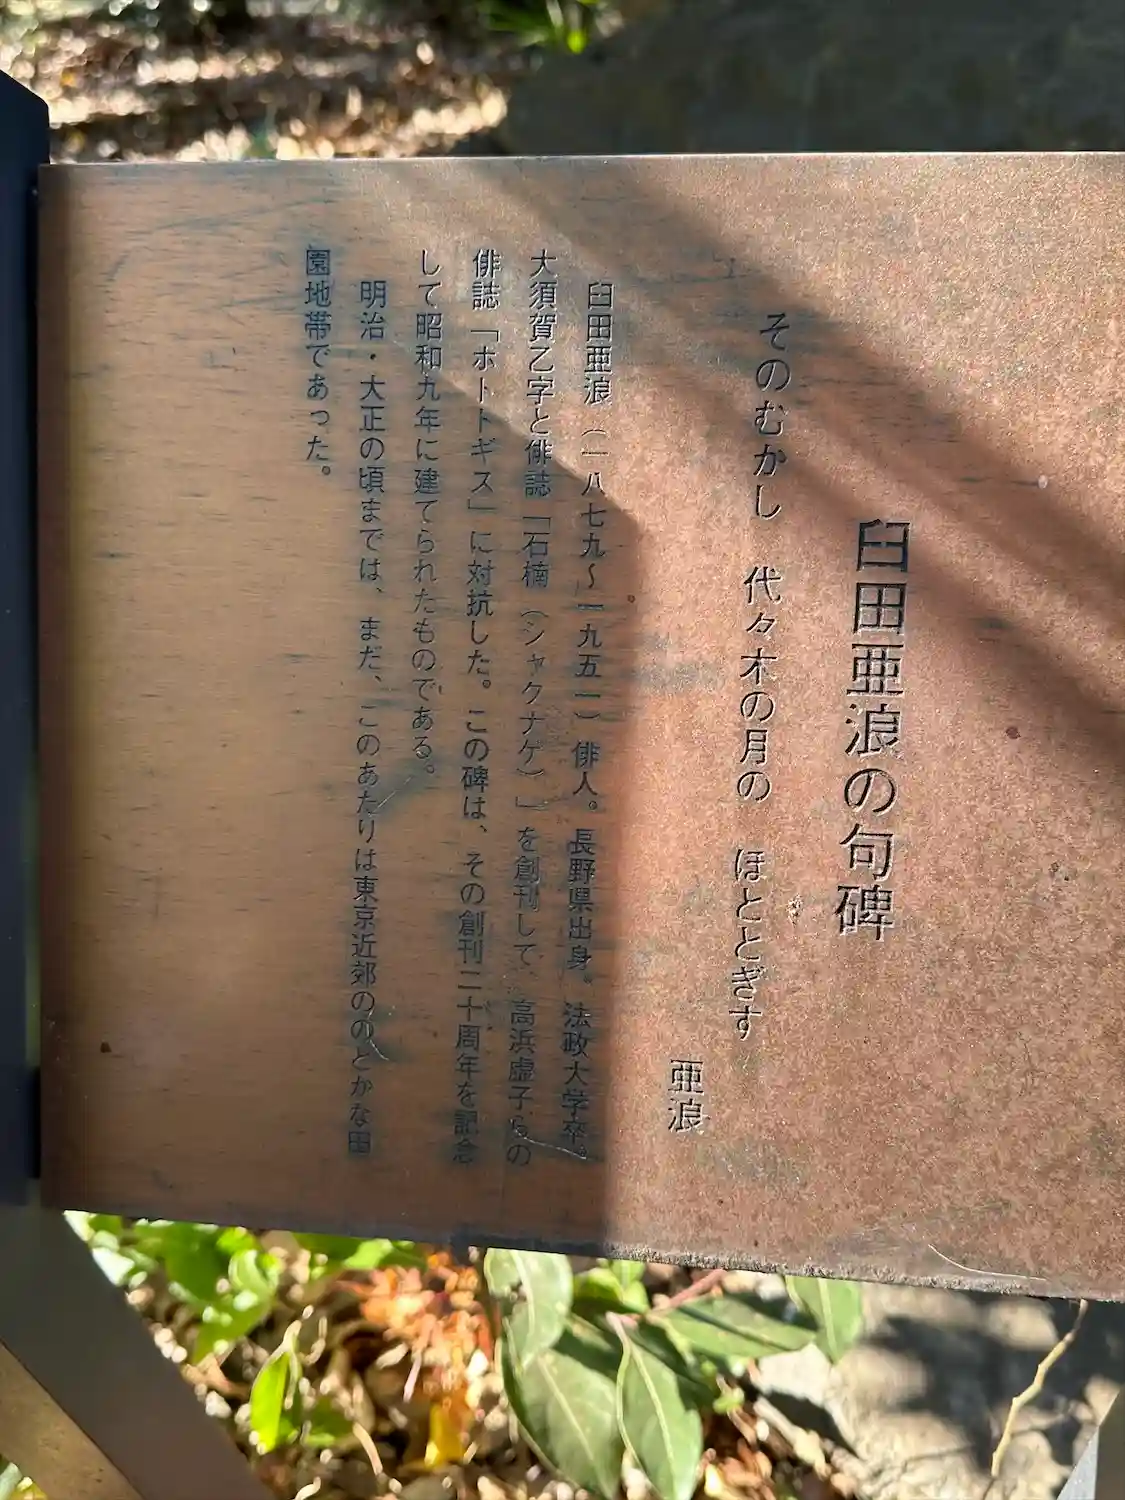 臼田亜浪の句碑
そのむかし　代々木の月の　ほととぎす
亜浪
臼田亜浪（一八七九〜一九五一）俳人。長野県出身。法政大学卒。
大須賀乙字と俳誌「石楠（シャクナゲ）」を創刊して、高浜虚子らの
俳誌「ホトトギス」に対抗した。この碑は、その創刊二十周年を記念
して昭和九年に建てられたものである。
明治・大正の頃までは、まだ、このあたりは東京近郊ののどかな田
園地帯であった。